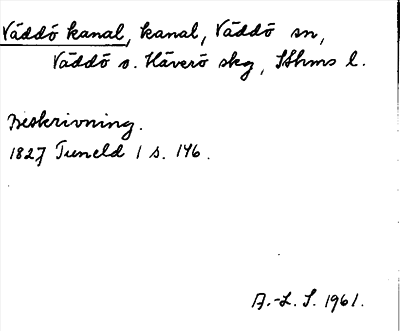 Väddö kanal, kanal, Väddö sn,
Väddö o. Häverö skg, Sthms l.
Beskrivning.
1827 Tuneld 1 s. 146.
A.-L. S. 1961.